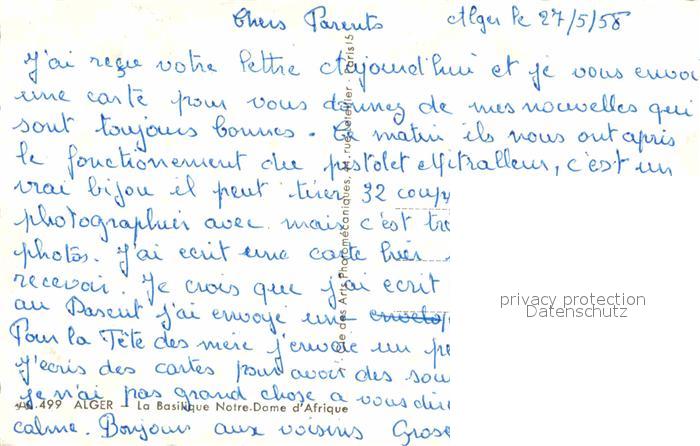 Chers Parents Alger le 27/5/58
J'ai reçue votre lettre Aujourd'hui et je vous envoi
une carte pour vous donnez de mes nouvelles qui
sont toujours bonnes. Ce matin ils nous ont apris
le fonctionement du pistolet Mitralleur, c'est un
vrai bijou il peut tirer 32 coups
photographier avec mais c'est
photos. J'ai ecrit une carte hier
recevoir. Je crois que j'ai ecrit
au j'ai envoyé une
Pour la Fête des mère j'envoie un
J'ecris des cartes pour avoir des
Je n'ai pas grand chose a vous dire
499 ALGER - La Basilique Notre-Dame d'Afrique
calme. Bonjour aux voisins Grose
des Arts Photomécaniques, rue Paris 5
privacy protection
Datenschutz